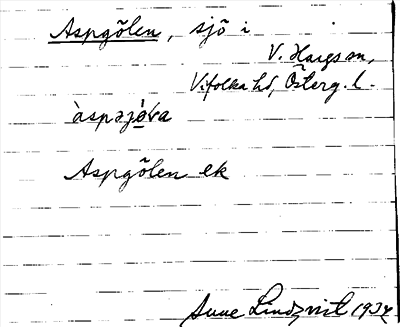 Aspgölen, sjö i
V. Hargs sn,
Vifolka hd, Österg. l.
Aspgölen ek
Sune Lindqvist 1934